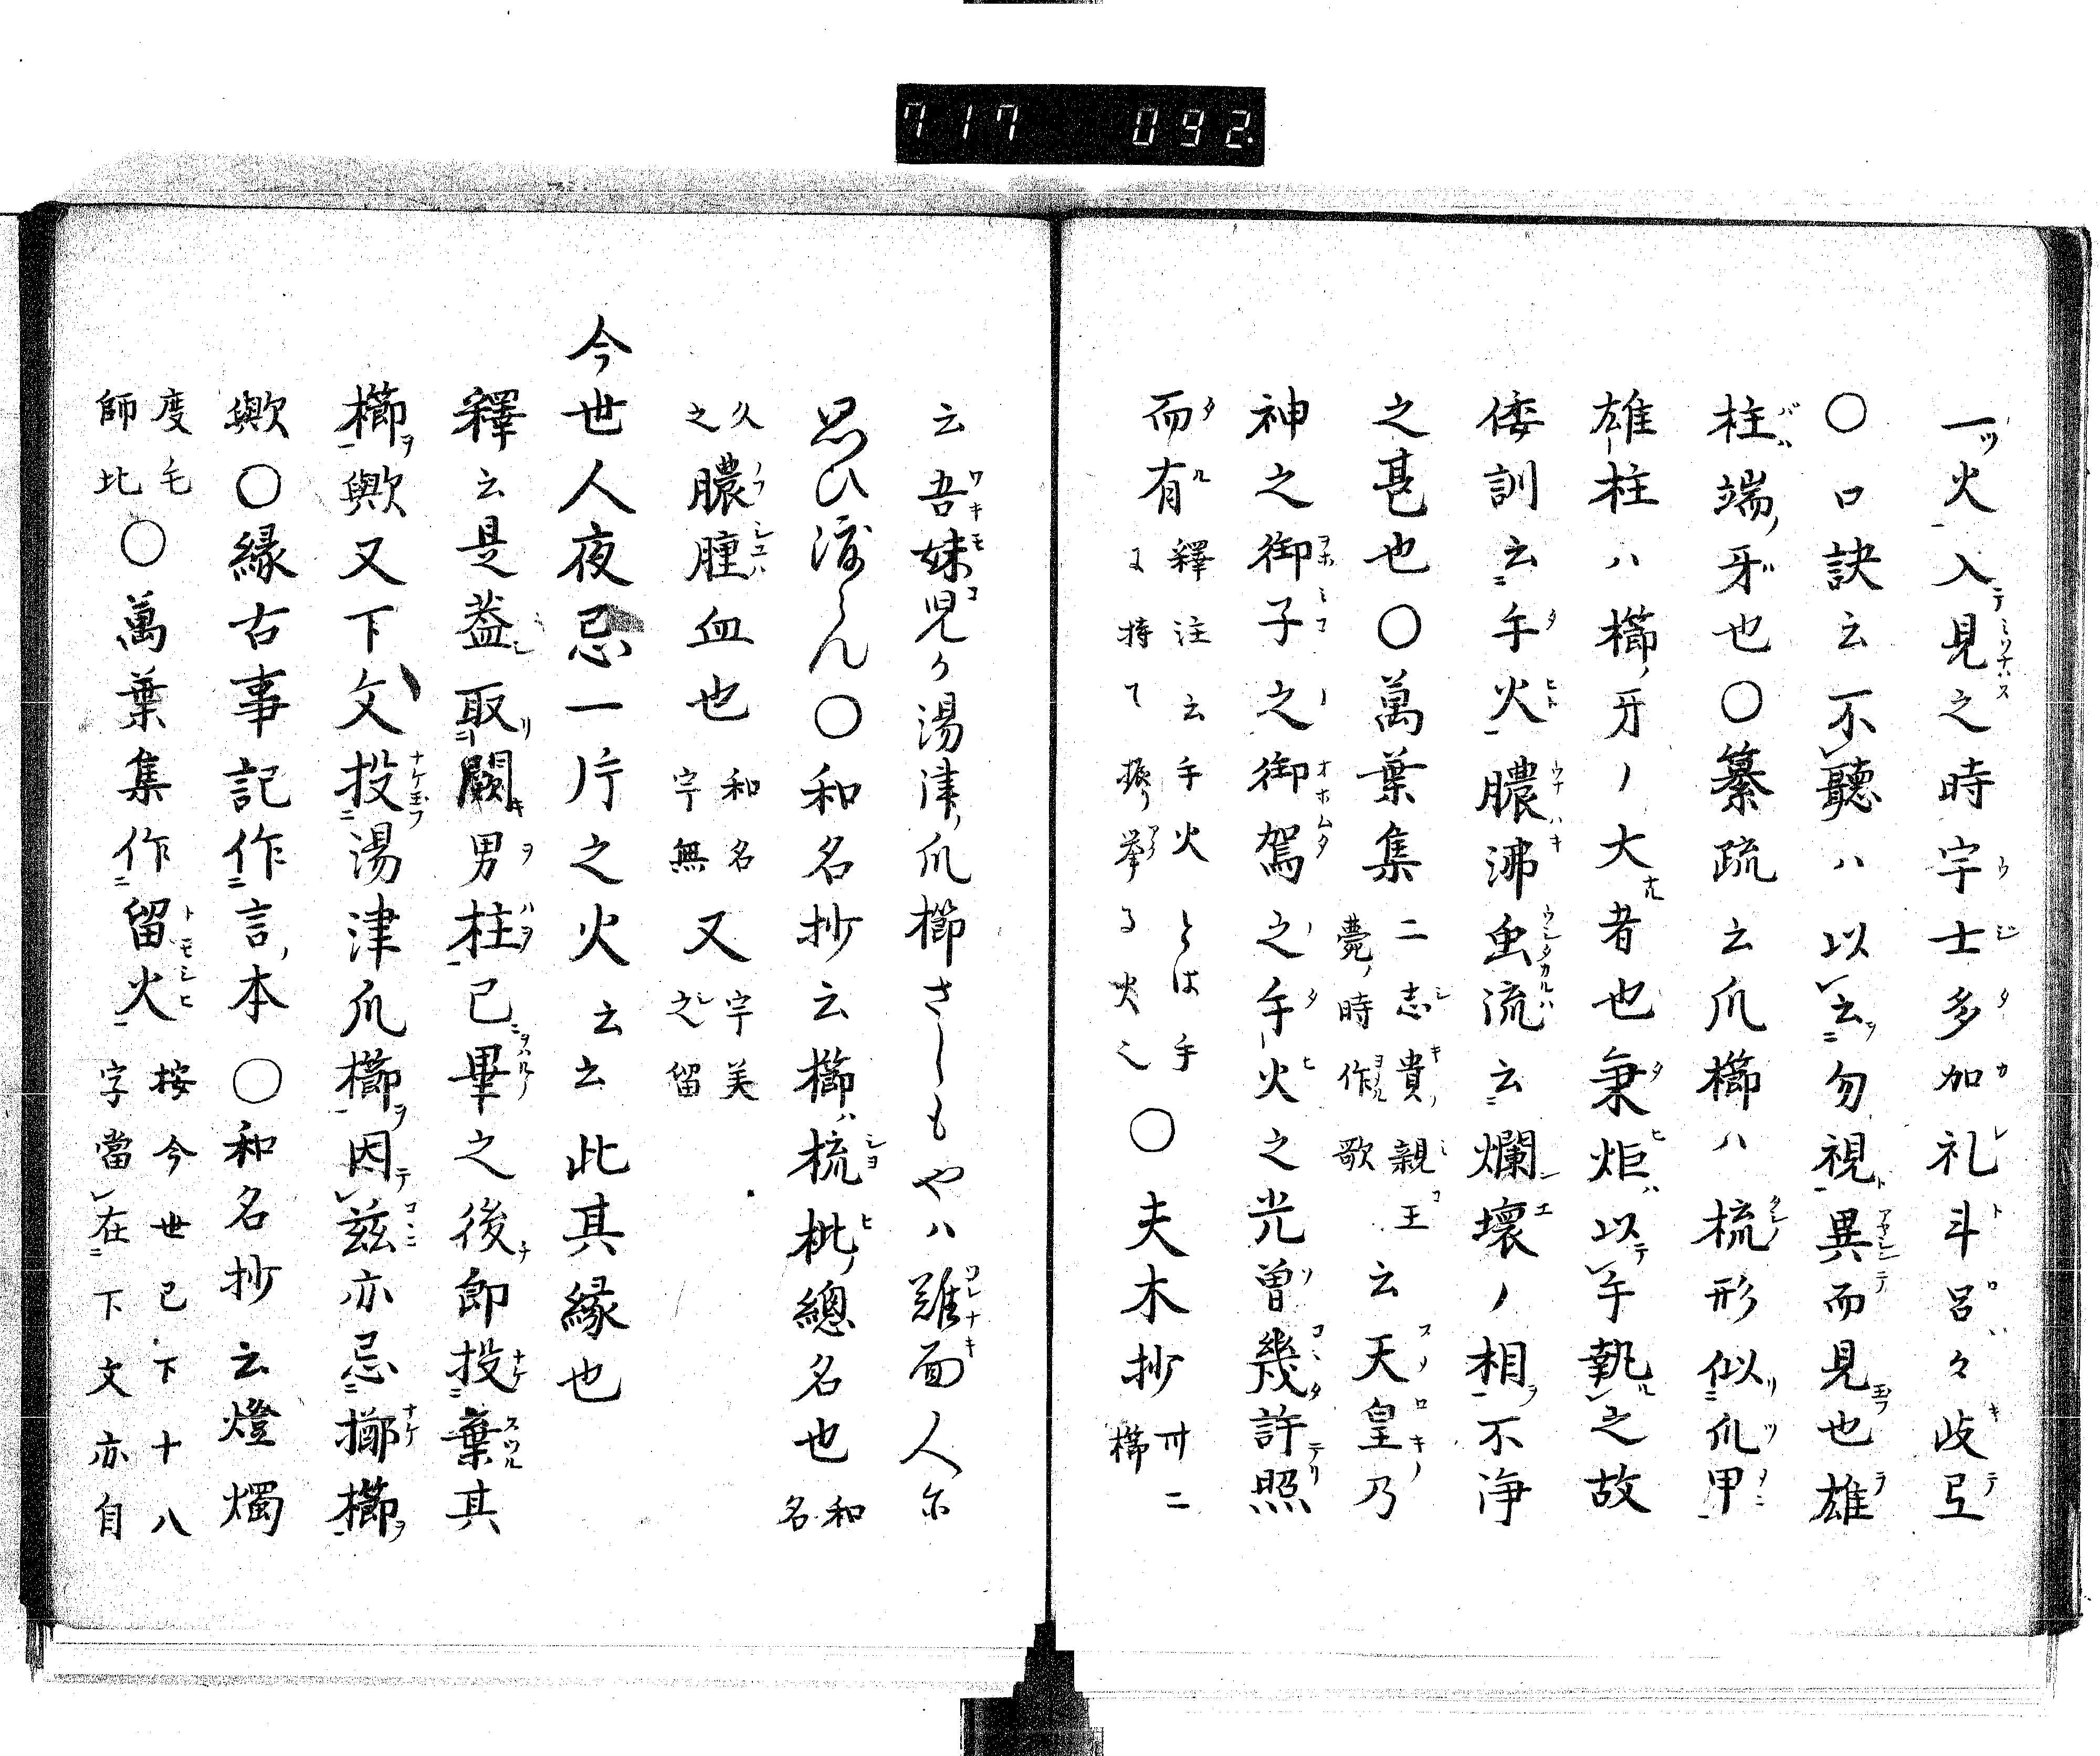 717 092.
一火入見之時宇士多加礼斗呂々岐弖
〇口訣云不聽ハ以云勿視異而見也雄
柱端牙也〇纂疏云爪櫛ハ梳形似爪甲
雄柱ハ櫛牙ノ大者也秉炬以手執之故
倭訓云手火膿沸虫流云爛壞ノ相不淨
之甚也〇萬葉集
二志貴親王
薨時作歌
云天皇乃
神之御子之御駕之手火之光曽幾許照
而有
釋注云手火とは手
に持て擧る火之
〇夫木抄
卅二
櫛
云吾妹児ケ湯津爪櫛さしもやハ難面人尓
思ひ渡らん〇和名抄云櫛ハ梳枇總名也
和
名
久
之
膿腫血也
和名
字無
又
宇美
之留
今世人夜忌一片之火云云此其縁也
釋云是盖取闕男柱已畢之後即投棄其
櫛歟又下文投湯津爪櫛因茲亦忌擲櫛
歟〇縁古事記作言本〇和名抄云燈燭
度毛
師比
〇萬葉集作留火
按今世已下十八
字當在下文亦自